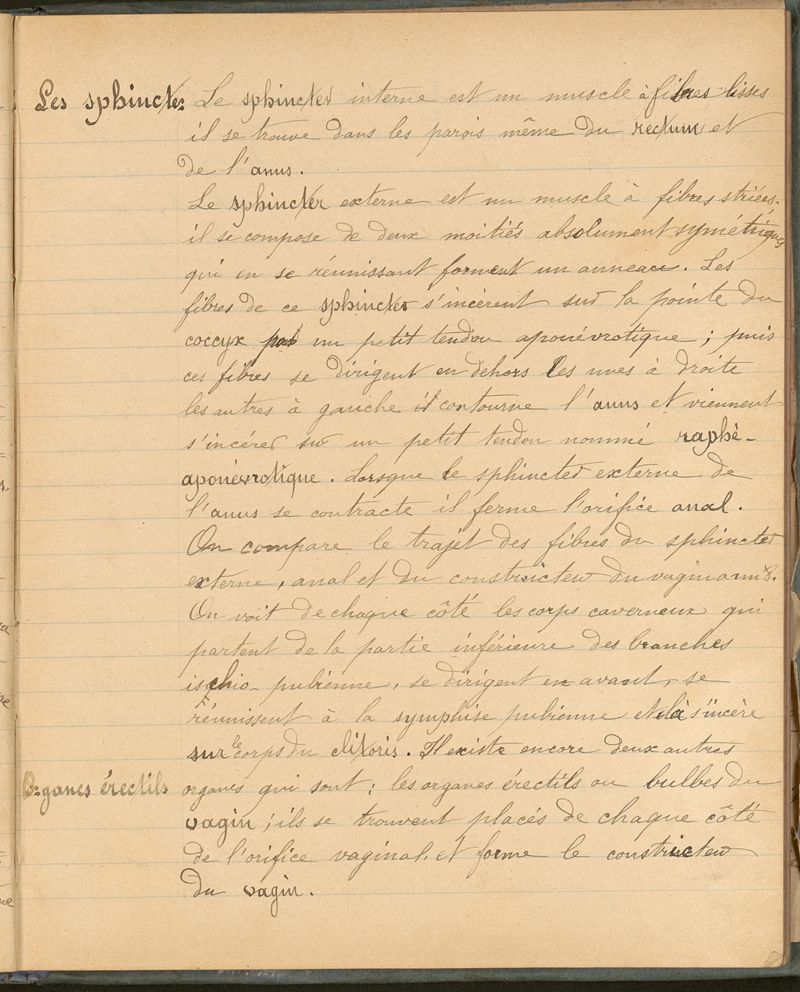 Les sphincter Le sphincter interne est un muscle à fibres lisses
il se trouve dans les parois même du rectum et
de l'anus.
Le sphincter externe est un muscle à fibres striées.
il se compose de deux moitiés absolument symétriques
qui en se réunissant forment un anneau. Les
fibres de ce sphincter s'incèrent sur la pointe du
coccyx par un petit tendon aponévrotique ; puis
ces fibres se dirigent en dehors les unes à droite
les autres à gauche il contourne l'anus et viennent
s'incérer sur un petit tendon nommé raphè-
aponévrotique. Lorsque le sphincter externe de
l'anus se contracte il ferme l'orifice anal.
On compare le trajet des fibres du sphincter
externe, anal et du constricteur du vagin au n 8.
On voit de chaque côté les corps caverneux qui
partent de la partie inférieure des branches
ischio-pubienne, se dirigent en avant, se
réunissent à la symphise pubienne et là s'incère
sur le corps du clitoris. Il existe encore deux autres
Organes érectils organes qui sont : les organes érectils ou bulbes du
vagin ; ils se trouvent placés de chaque côté
de l'orifice vaginal, et forme le constricteur
du vagin.